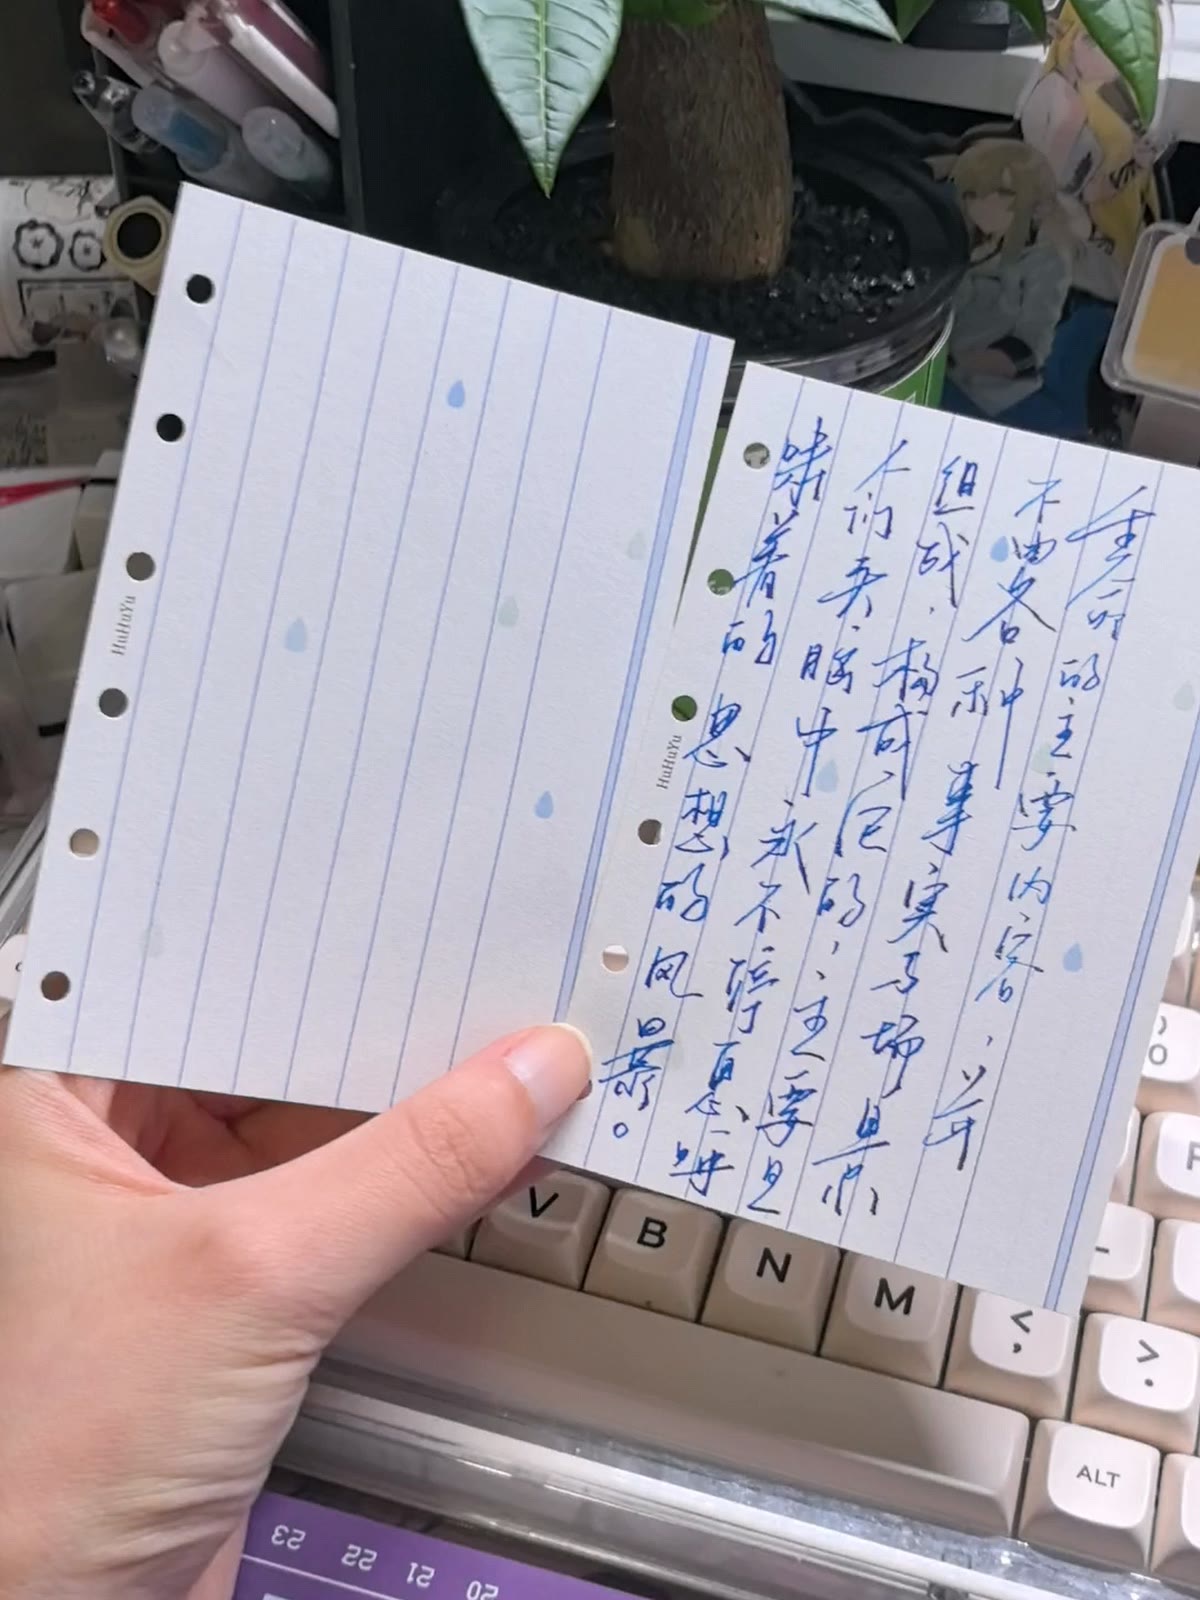 生命的主要内容，并
不由各种事实与场景
组成，构成它的，主要是
人们头脑中永不停息呼
啸着的思想的风暴。
HuHuYu
HuHuYu
V
B
N
M
<
,
>
.
ALT
23 22 21 20